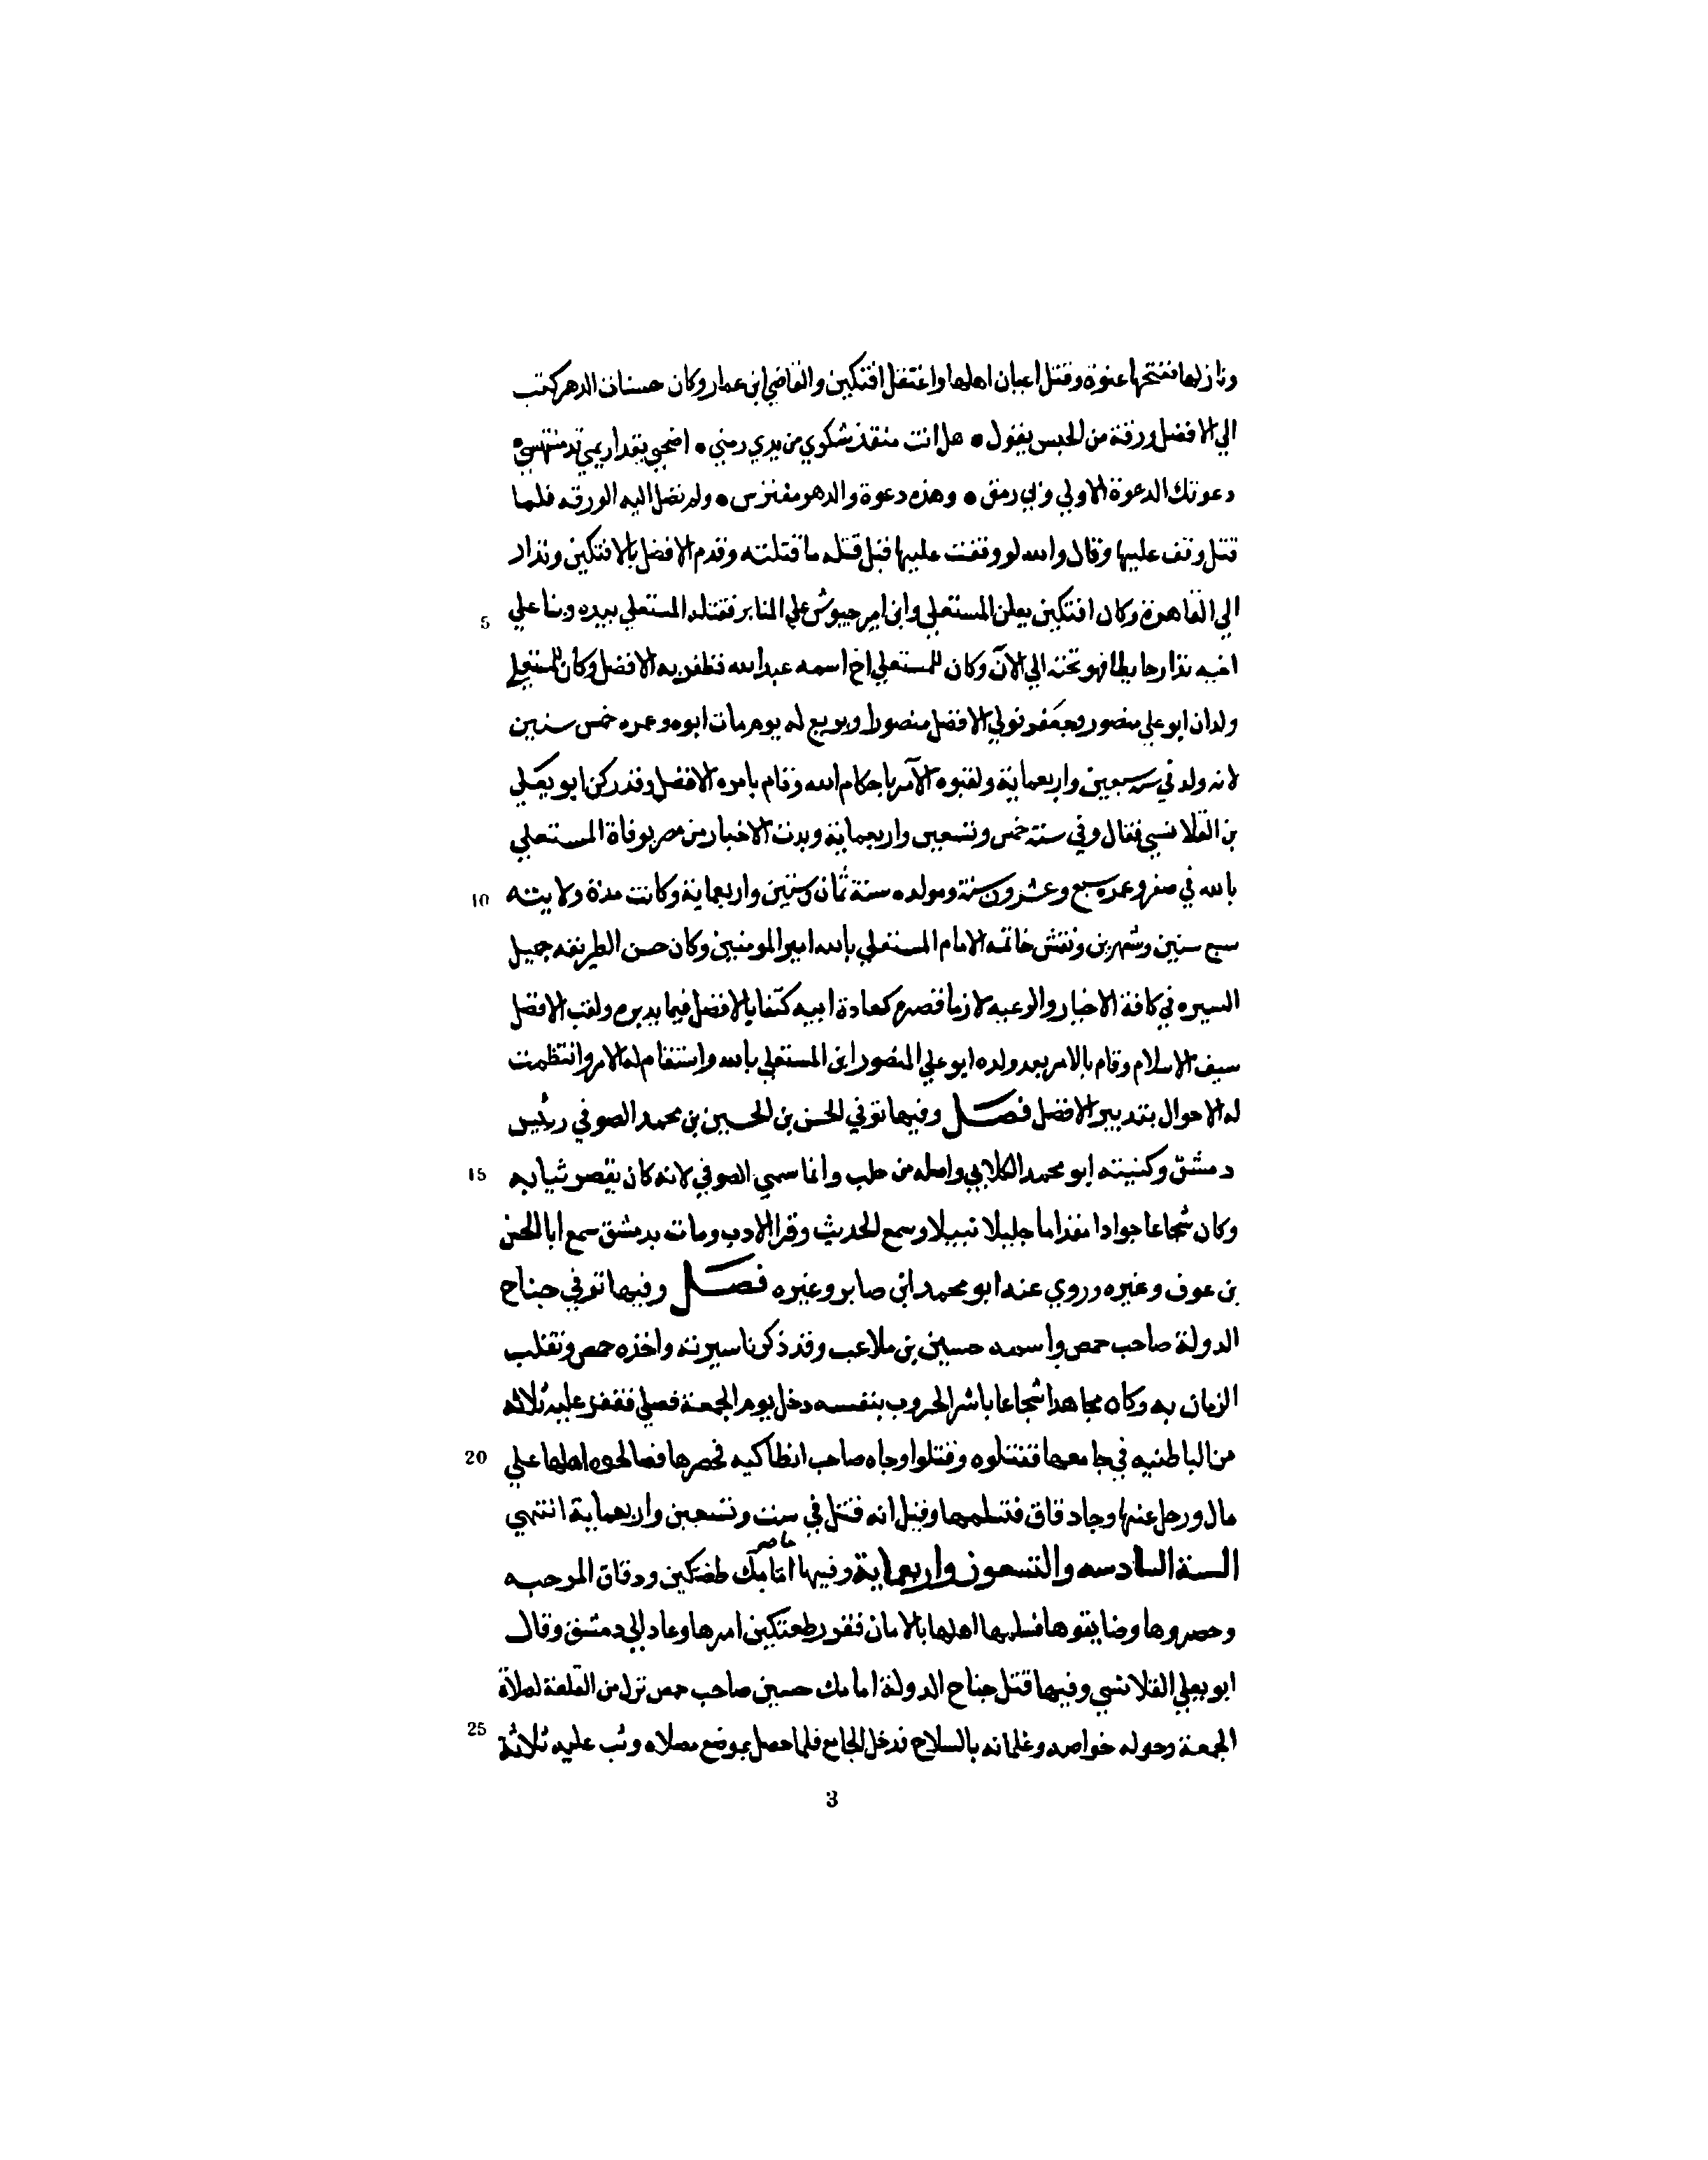 ونازلها ففتحها عنوة وقتل اعيان اهلها واعتقل افتكين والقاضي ابن عمار وكان حسنات الدهر كتب
الي الافضل ورقة من الحبس يقول • هل انت منقذ شكوي من يدي زمني • اضحي يقد اديمي قد منتهس
دعوتك الدعوة الاولي وبي رمق • وهذه دعوة والدهر مفترس • ولم تصل اليه الورقه فلما
قتل وقف عليها وقال والله لو وقفت عليها قبل قتله ما قتلته وقدم الافضل بالافتكين ونزار
5 الي القاهرة وكان افتكين يعلن المستعلي وابن امير جيوش علي المنابر فقتله المستعلي بيده وبنا علي
اخيه نزار حايطا فهو تحته الي الآن وكان للمستعلي اخ اسمه عبد الله فظفر به الافضل وكان للمستعلي
ولدان ابو علي منصور وجعفر فولي الافضل منصورا وبويع له يوم مات ابوه وعمره خمس سنين
لانه ولد في سنة سبعين واربعماية ولقبوه الآمر باحكام الله وقام بامره الافضل وقد ركن ابو يعلي
بن القلانسي فقال وفي سنة خمس وتسعين واربعماية وردت الاخبار من مصر بوفاة المستعلي
10 بالله في صفر وعمره سبع وعشرون سنة ومولده سنة ثمان وستين واربعماية وكانت مدة ولايته
سبع سنين وشهرين ونقش خاتمه الامام المستعلي بالله امير المومنين وكان حسن الطريقه جميل
السيره في كافة الاخبار والرعيه لازما قصره كعادة ابيه كتفا بالافضل فيما يدبره ولقب الافضل
سيف الاسلام وقام بالامر بعد ولده ابو علي المنصور ابن المستعلي بالله واستقام له الامر وانتظمت
له الاحوال بتدبير الافضل فصل وفيها توفي الحسن بن الحسين بن محمد الصوفي رئيس
15 دمشق وكنيته ابو محمد الكلابي واصله من حلب وانما سمي الصوفي لانه كان يقصر ثيابه
وكان شجاعا جوادا مقداما جليلا نبيلا وسمع الحديث وقرا الادب ومات بدمشق سمع ابا الحسن
بن عوف وغيره وروي عنه ابو محمد ابن صابر وغيره فصل وفيها توفي جناح
الدولة صاحب حمص واسمه حسين بن ملاعب وقد ذكرنا سيرته واخذه حمص وتقلب
الزمان به وكان مجاهدا شجاعا باشر الحروب بنفسه دخل يوم الجمعة فصلي فقفز عليه ثلاثه
20 من الباطنيه في جامعها فقتلوه وقتلوا وجاه صاحب انطاكيه فحصرها فصالحوه اهلها علي
مال ورحل عنها وجا دقاق فتسلمها وقيل انه قتل في ست وتسعين واربعماية انتهي
السنة السادسه والتسعون واربعماية وفيها حاصر اتابك طغتكين ودقاق الرحبه
وحصروها وضايقوها فسلمها اهلها بالامان فقرر طغتكين امرها وعاد الي دمشق وقال
ابو يعلي القلانسي وفيها قتل جناح الدولة اتابك حسين صاحب حمص نزل من القلعة لصلاة
25 الجمعة وحوله خواصه وغلمانه بالسلاح فدخل الجامع فلما حصل بموضع مصلاه وثب عليه ثلاثة
3